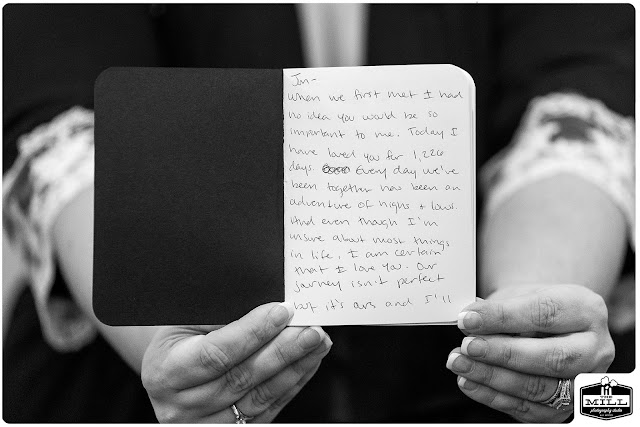 Jon-
When we first met I had
no idea you would be so
important to me. Today I
have loved you for 1,226
days. Every day we've
been together has been an
adventure of highs + lows.
And even though I'm
unsure about most things
in life, I am certain
that I love you. Our
journey isn't perfect
but it's ours and I'll
THE
MILL
photography studio